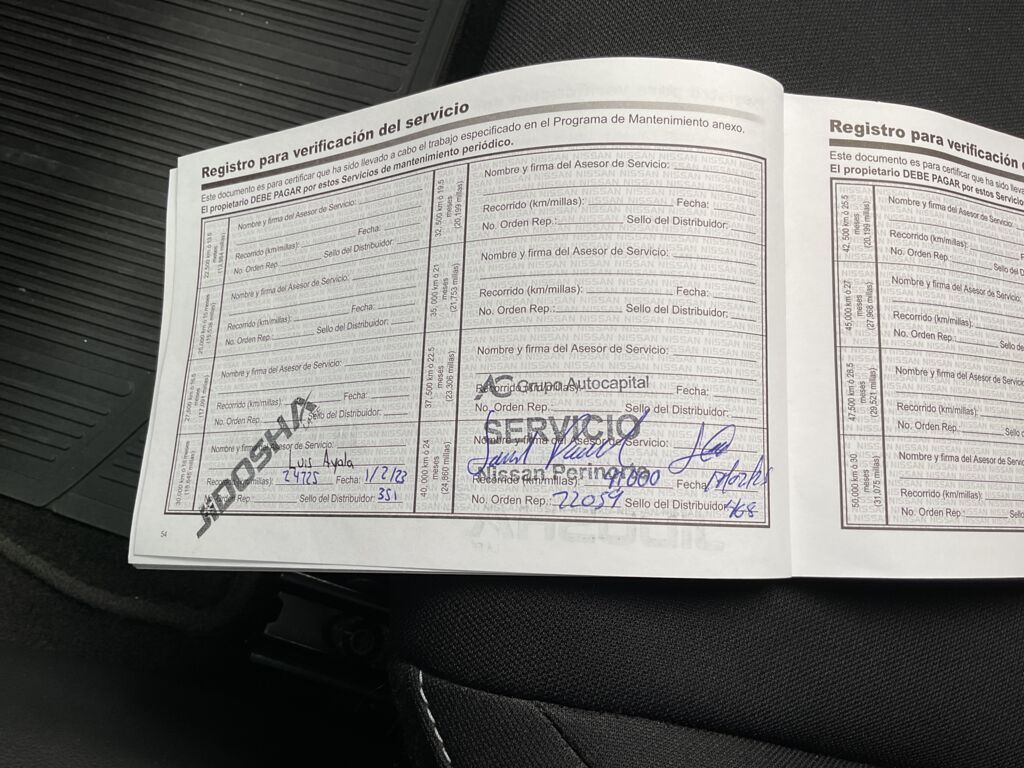 Registro para verificación del servicio
Este documento es para certificar que ha sido llevado a cabo el trabajo especificado en el Programa de Mantenimiento anexo.
El propietario DEBE PAGAR por estos Servicios de mantenimiento periódico.
Nombre y firma del Asesor de Servicio:
Recorrido (km/millas): Fecha:
No. Orden Rep.: Sello del Distribuidor:
Nombre y firma del Asesor de Servicio:
Recorrido (km/millas): Fecha:
No. Orden Rep.: Sello del Distribuidor:
Nombre y firma del Asesor de Servicio:
Recorrido (km/millas): Fecha:
No. Orden Rep.: Sello del Distribuidor:
30,000 km ó 18 meses
Nombre y firma del Asesor de Servicio:
Luis Ayala
Recorrido (km/millas): 24725 Fecha: 1/2/23
Rep.: Sello del Distribuidor: 351
32,500 km ó 19.5 meses (20,199 millas)
Nombre y firma del Asesor de Servicio:
Recorrido (km/millas): Fecha:
No. Orden Rep.: Sello del Distribuidor:
35,000 km ó 21 meses (21,753 millas)
Nombre y firma del Asesor de Servicio:
Recorrido (km/millas): Fecha:
No. Orden Rep.: Sello del Distribuidor:
37,500 km ó 22.5 meses (23,306 millas)
Nombre y firma del Asesor de Servicio:
Recorrido (km/millas): Fecha:
No. Orden Rep.: Sello del Distribuidor:
AC Grupo Autocapital
SERVICIO
Nissan Perinorte
40,000 km ó 24 meses (24,860 millas)
Nombre y firma del Asesor de Servicio:
Recorrido (km/millas): Fecha:
No. Orden Rep.: 22059 Sello del Distribuidor: 468
54
Registro para verificación
Este documento es para certificar que ha sido lleva
El propietario DEBE PAGAR por estos Servicios
42,500 km ó 25.5 meses
Nombre y firma del Asesor de Servicio:
Recorrido (km/millas):
No. Orden Rep. Sello del D
45,000 km ó 27 meses (27,968 millas)
Nombre y firma del Asesor de Servicio:
Recorrido (km/millas):
No. Orden Rep.: Sello de
47,500 km ó 28.5 meses (29,521 millas)
Nombre y firma del Asesor de Servicio:
Recorrido (km/millas):
No. Orden Rep.: Sello
50,000 km ó 30 meses (31,075 millas)
Nombre y firma del Asesor de Servicio:
Recorrido (km/millas):
No. Orden Rep.: Sello